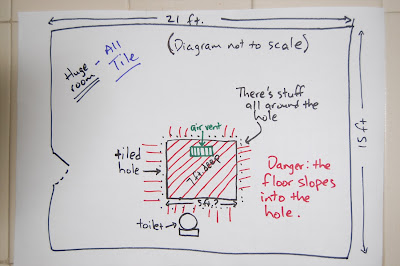 21 ft.
(Diagram not to scale)
Huge room - All Tile
There's stuff
all around the
hole
air vent
tiled
hole
7 ft. deep
15 ft
Danger: the
floor slopes
into the
hole.
5 ft.?
toilet